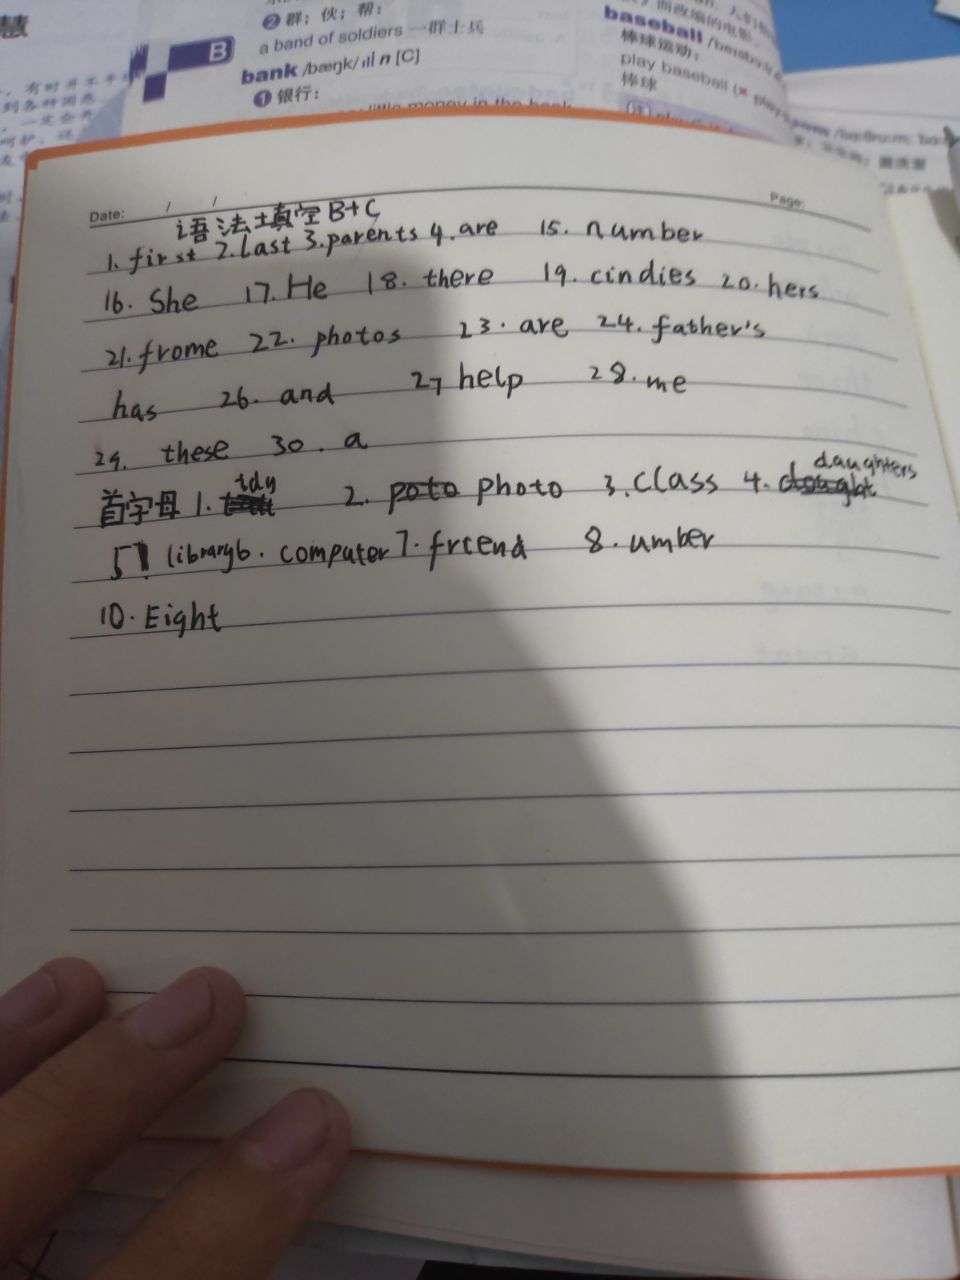 慧
②群；伙；帮：
a band of soldiers 一群士兵
B
bank /bæŋk/ n [C]
①银行：
baseball
棒球运动：
play baseball
棒球
Date: / /
Page:
语法填空 B+C
1. first 2. last 3. parents 4. are 15. number
16. She 17. He 18. there 19. cindies 20. hers
21. frome 22. photos 23. are 24. father's
has 26. and 27 help 28. me
29. these 30. a
daughters
首字母 1. tdy 2. photo 3. class 4.
5 library 6. computer 7. friend 8. umber
10. Eight